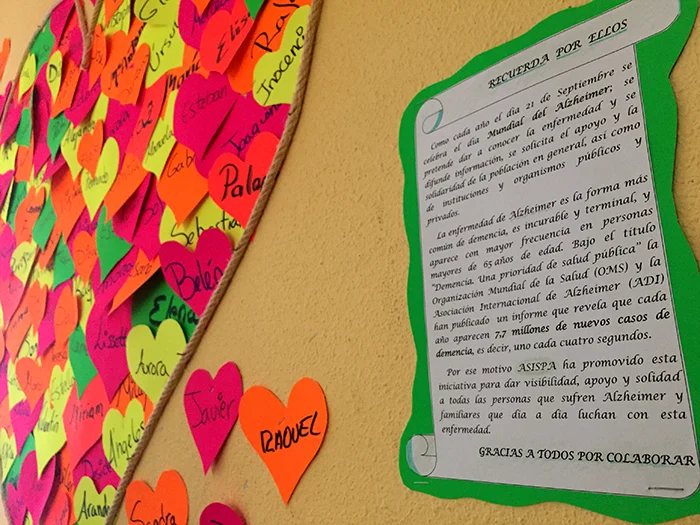 RECUERDA POR ELLOS
Como cada año el día 21 de Septiembre se
celebra el día Mundial del Alzheimer; se
pretende dar a conocer la enfermedad y se
difunde información, se solicita el apoyo y la
solidaridad de la población en general, así como
de instituciones y organismos públicos y
privados.
La enfermedad de Alzheimer es la forma más
común de demencia, es incurable y terminal, y
aparece con mayor frecuencia en personas
mayores de 65 años de edad. Bajo el título
"Demencia. Una prioridad de salud pública" la
Organización Mundial de la Salud (OMS) y la
Asociación Internacional de Alzheimer (ADI)
han publicado un informe que revela que cada
año aparecen 7,7 millones de nuevos casos de
demencia, es decir, uno cada cuatro segundos.
Por ese motivo ASISPA ha promovido esta
iniciativa para dar visibilidad, apoyo y solidad
a todas las personas que sufren Alzheimer y
familiares que día a día luchan con esta
enfermedad.
GRACIAS A TODOS POR COLABORAR
Inocenci
Esteban
Joaquin
Gabi
Pala
Sebastia
Belén
Elena
Lissett
Aurora
Miriam
Angeles
Javier
RAQUEL
Sandra